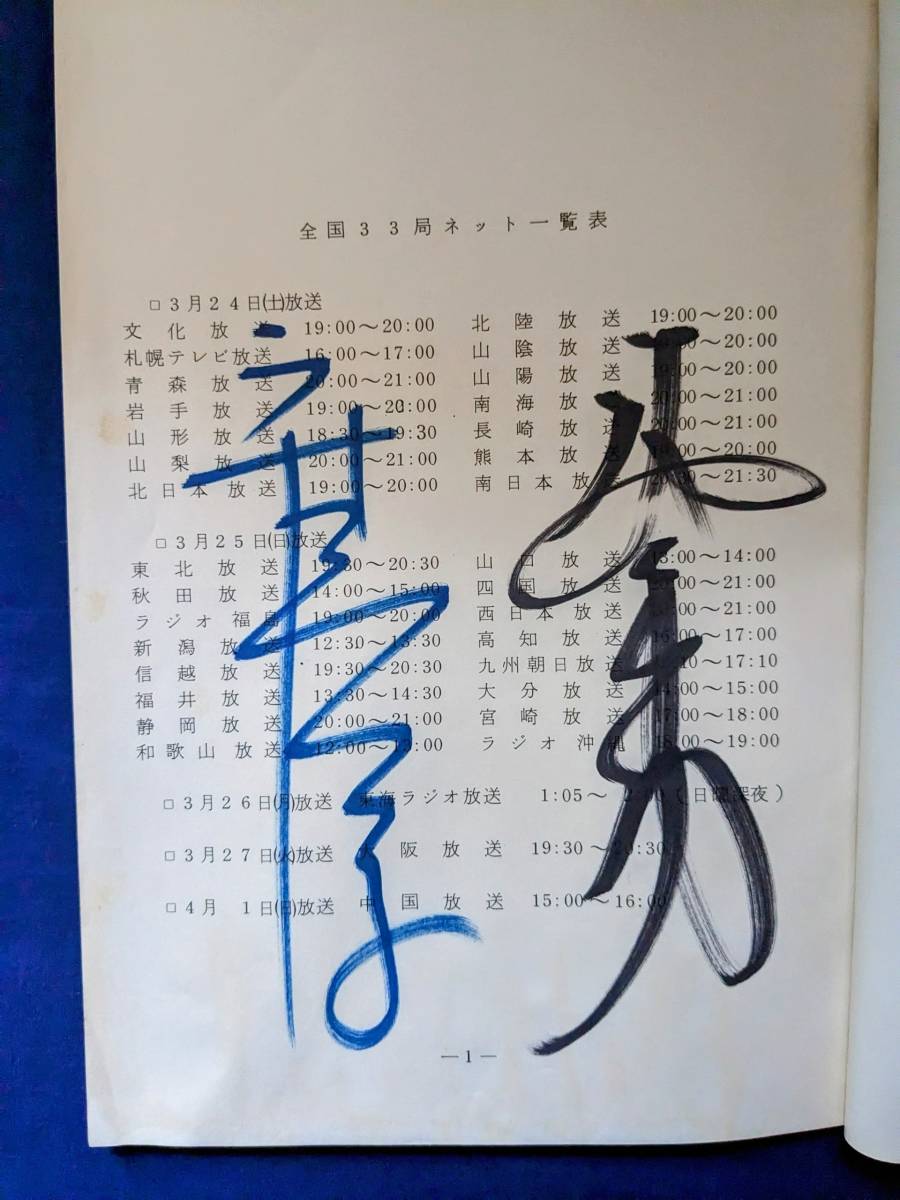 全国33局ネット一覧表
□3月24日(土)放送
文化放送 19:00〜20:00
札幌テレビ放送 16:00〜17:00
青森放送 20:00〜21:00
岩手放送 19:00〜20:00
山形放送 18:30〜19:30
山梨放送 20:00〜21:00
北日本放送 19:00〜20:00
北陸放送 19:00〜20:00
山陰放送 19:00〜20:00
山陽放送 19:00〜20:00
南海放送 20:00〜21:00
長崎放送 20:00〜21:00
熊本放送 19:00〜20:00
南日本放送 20:30〜21:30
□3月25日(日)放送
東北放送 19:30〜20:30
秋田放送 14:00〜15:00
ラジオ福島 19:00〜20:00
新潟放送 12:30〜13:30
信越放送 19:30〜20:30
福井放送 13:30〜14:30
静岡放送 20:00〜21:00
和歌山放送 12:00〜13:00
山口放送 13:00〜14:00
四国放送 20:00〜21:00
西日本放送 20:00〜21:00
高知放送 16:00〜17:00
九州朝日放送 16:10〜17:10
大分放送 14:00〜15:00
宮崎放送 17:00〜18:00
ラジオ沖縄 18:00〜19:00
□3月26日(月)放送 東海ラジオ放送 1:05〜2:00(日曜深夜)
□3月27日(火)放送 大阪放送 19:30〜20:30
□4月1日(日)放送 中国放送 15:00〜16:00
—1—